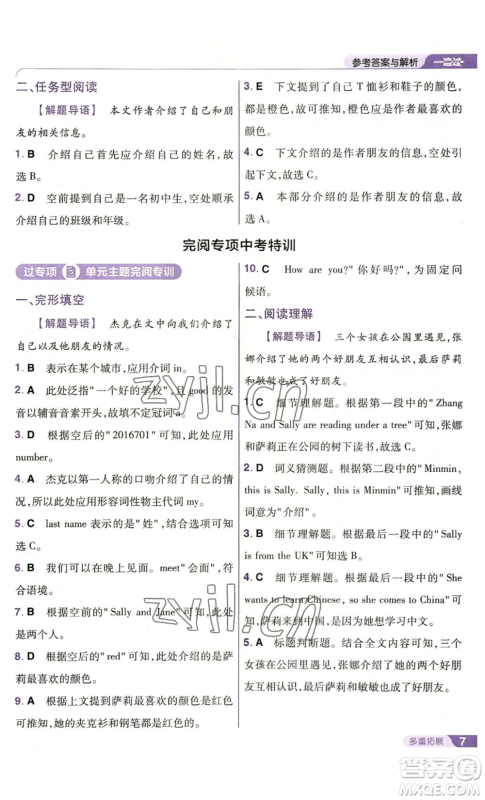 参考答案与解析 一遍过
二、任务型阅读
【解题导语】 本文作者介绍了自己和朋
友的相关信息。
1. B 介绍自己首先应介绍自己的姓名,故
选 B。
2. D 空前提到自己是一名初中生,空处顺承
介绍自己的班级和年级。
3. E 下文提到了自己 T 恤衫和鞋子的颜色,
都是橙色,故可知,橙色应是作者最喜欢的
颜色。
4. C 下文介绍的是作者朋友的信息,空处引
起下文,故选 C。
5. A 本部分介绍的是作者朋友的信息,故
选 A。
完阅专项中考特训
过专项 单元主题完阅专训
一、完形填空
【解题导语】 杰克在文中向我们介绍了自
己以及他朋友的情况。
1. B 表示在某个城市,应用介词 in。
2. A 此处泛指"一个好的学校",且 good 的发
音以辅音音素开头,故用不定冠词 a。
3. D 根据空后的"2016701"可知,此处应用
number。
4. A 杰克以第一人称的口吻介绍了自己的情
况,此处应用形容词性物主代词 my。
5. C last name 表示的是"姓",结合选项可知
选 C。
6. B 我们可以在晚上见面。meet"会面",符
合语境。
7. B 根据空前的"Sally and Jane"可知,是两
个朋友。
8. D 根据空后的"red"可知,此处应是介绍
颜色。
9. A 根据上文提到萨莉最喜欢的颜色是红色
可推知,她的夹克衫和钢笔都是红色的。
10. C How are you? "你好吗?"是常用问
候语。
二、阅读理解
【解题导语】 三个女孩在公园里遇见,张
娜介绍了她的两个好朋友互相认识,最后萨莉
和敏敏也成了好朋友。
1. C 细节理解题。根据第一段中的"Zhang
Na and Sally are reading under a tree"可知,张
娜和萨莉正在公园的树下读书,故选 C。
2. D 词义猜测题。根据第二段中的"Minmin,
this is Sally. Sally, this is Minmin"可知,画线
词意为"介绍"。
3. B 细节理解题。根据最后一段中的"Sally
is from the UK"可知选 B。
4. C 细节理解题。根据最后一段中的"She
wants to learn Chinese, so she comes to China"可
知,萨莉来到中国,是因为她想学习中文。
5. A 标题判断题。通读全文可知,三个
女孩在公园里遇见,张娜介绍了她的两个好朋
友互相认识,最后萨莉和敏敏也成了好朋友。
zyjl.cn
zyjl.cn
多重拓展 7